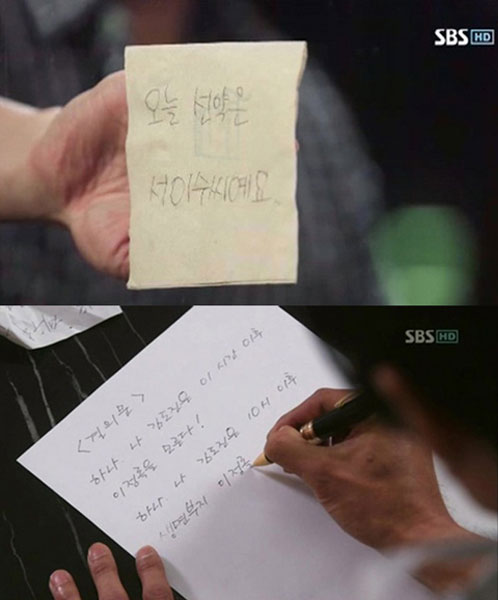 SBS HD
오늘 선약은
서이수씨예요
SBS HD
<결의문>
하나. 나 김도진은 이 시간 이후
이정록을 모른다!
하나. 나 김도진은 10시 이후
생면부지 이정록